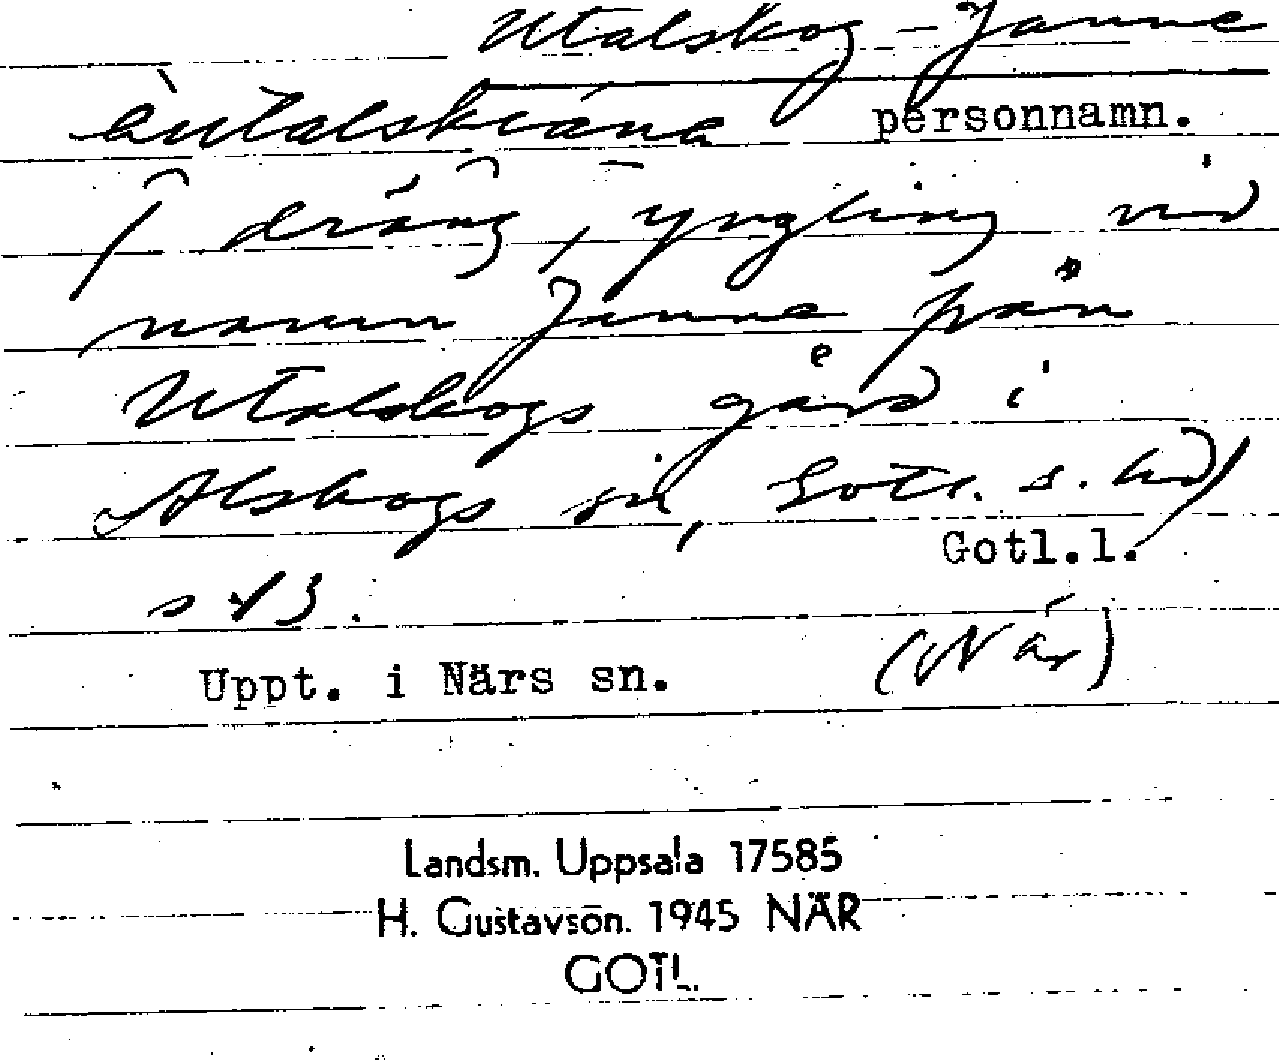 Utalskog-Janne
personnamn.
/ dräng, yngling vid
namn Janne från
Utalskogs gård i
Alskogs sn, Gotl. s. hd/
Gotl.l.
s 13.
(När)
Uppt. i Närs sn.
Landsm. Uppsala 17585
H. Gustavson. 1945 NÄR
GOTL.